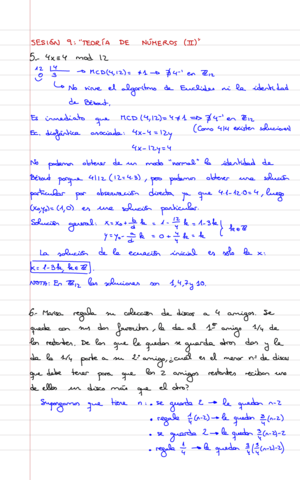 SESIÓN 9: "TEORÍA DE NÚMEROS (II)"
5. 4x≡4 mod 12
12 |4 → MCD(4,12)= ≠1 → ∄4⁻¹ en ℤ₁₂
0 3
↳ No sirve el algoritmo de Euclides ni la identidad
de Bézout.
Es inmediato que MCD(4,12)=4≠1 ⇒ ∄4⁻¹ en ℤ₁₂
(Como 4|4 existen soluciones)
Ec. diofántica asociada: 4x-4=12y
4x-12y=4
No podemos obtener de un modo "normal" la identidad de
Bézout porque 4|12 (12=4·3), pero podemos obtener una solución
particular por observación directa ya que 4·1-12·0=4, luego
(x₀,y₀)=(1,0) es una solución particular.
Solución general: x=x₀+b/d k=1-12/4 k=1-3k
y=y₀-a/d k=0+4/4 k=k } k∈ℤ
La solución de la ecuación inicial es solo la x:
x=1-3k, k∈ℤ
NOTA: En ℤ₁₂ las soluciones son 1,4,7 y 10.
6. Marisa regala su colección de discos a 4 amigos. Se
queda con sus dos favoritos, le da al 1er amigo 1/4 de
los restantes. De los que le quedan se guarda otros dos y le
da la 1/4 parte a su 2º amigo, ¿cuál es el menor nº de discos
que debe tener para que los 2 amigos restantes reciban uno
de ellos un disco más que el otro?
Supongamos que tiene n: • se guarda 2 → le quedan n-2
• regala 1/4(n-2) → le quedan 3/4(n-2)
• se guarda 2 → le quedan 3/4(n-2)-2
• regala 1/4 → le quedan 3/4(3/4(n-2)-2)